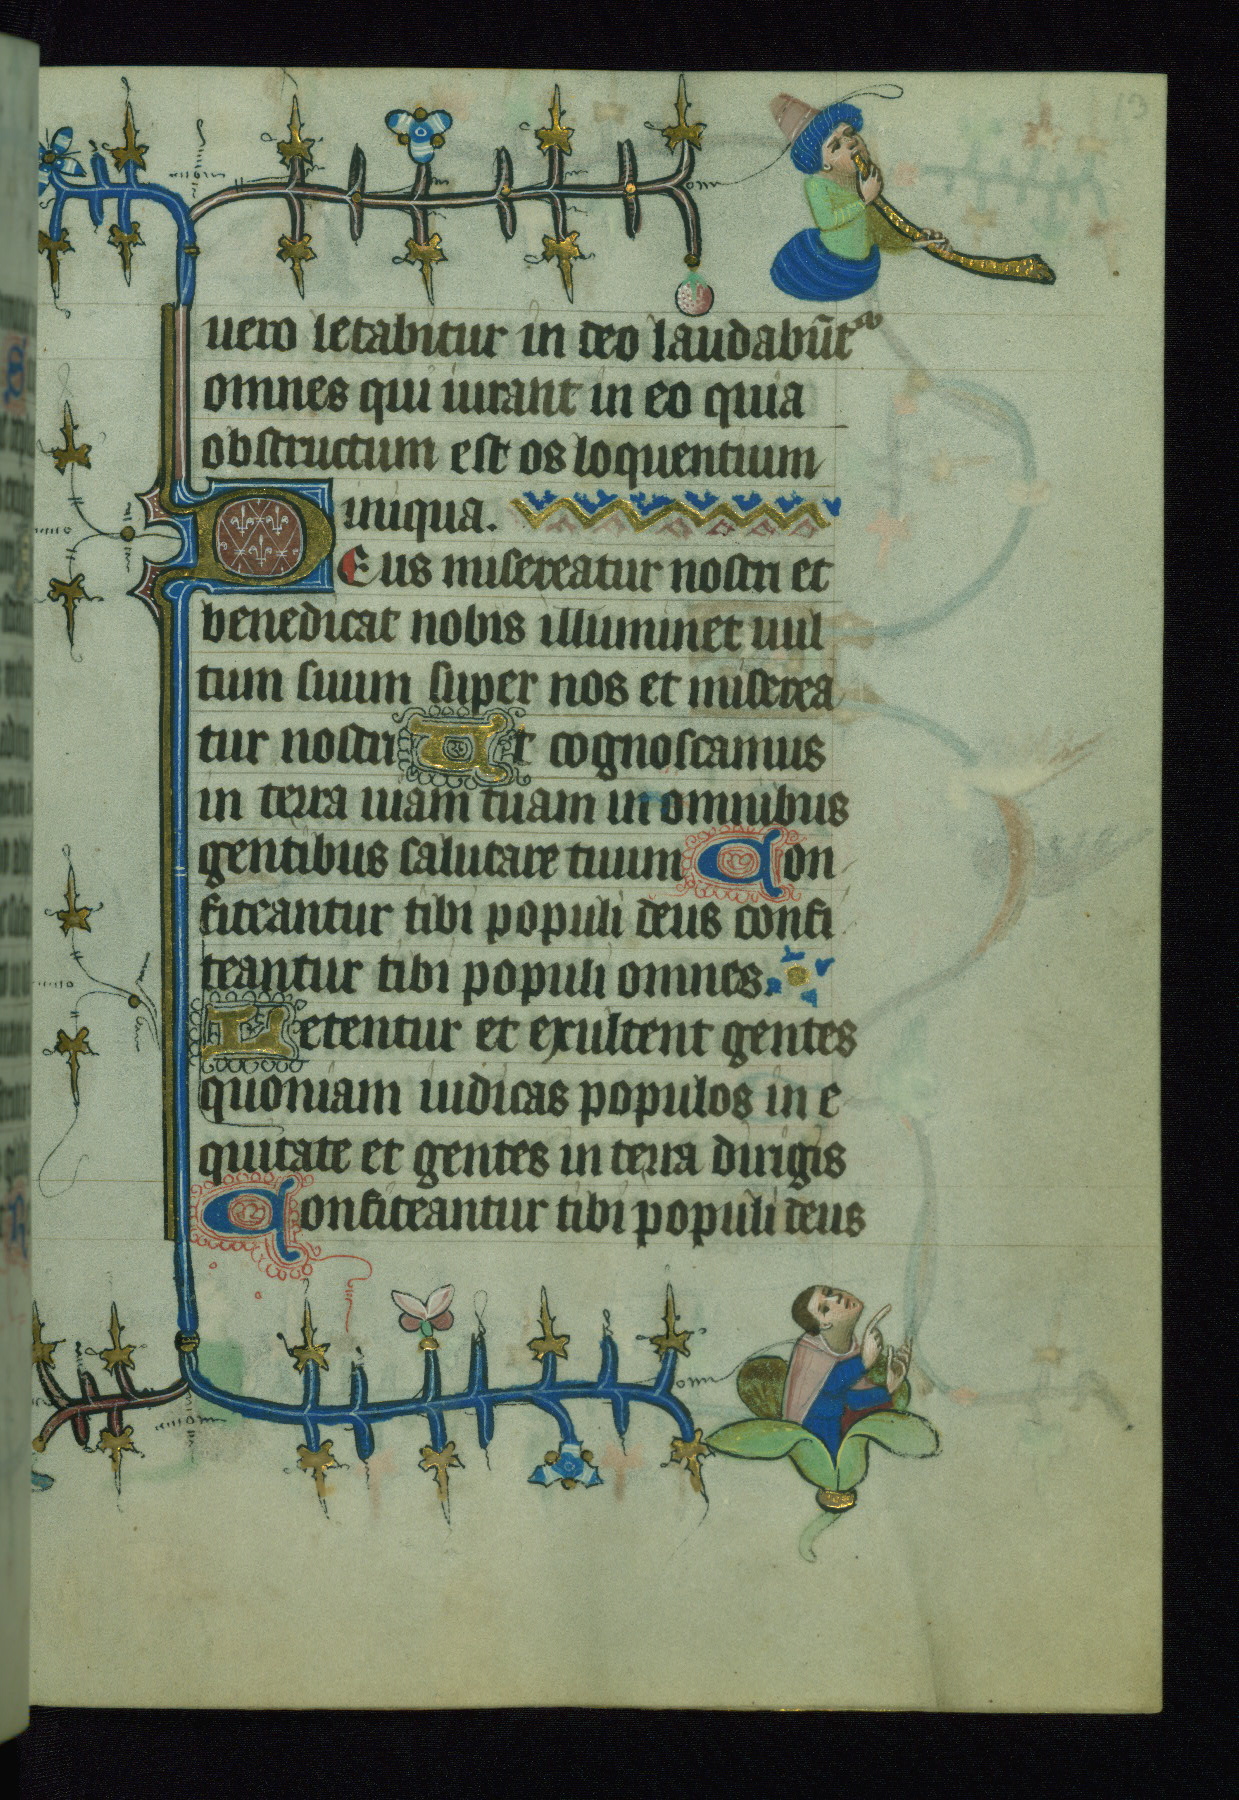 13
uero letabitur in deo laudabūtᵃ
omnes qui iurant in eo quia
obstructum est os loquentium
iniqua.
Deus misereatur nostri et
benedicat nobis illuminet uul
tum suum super nos et miserea
tur nostri Ut cognoscamus
in terra uiam tuam in omnibus
gentibus salutare tuum Con
fiteantur tibi populi deus confi
teantur tibi populi omnes.
Letentur et exultent gentes
quoniam iudicas populos in e
quitate et gentes in terra dirigis
Confiteantur tibi populi deus